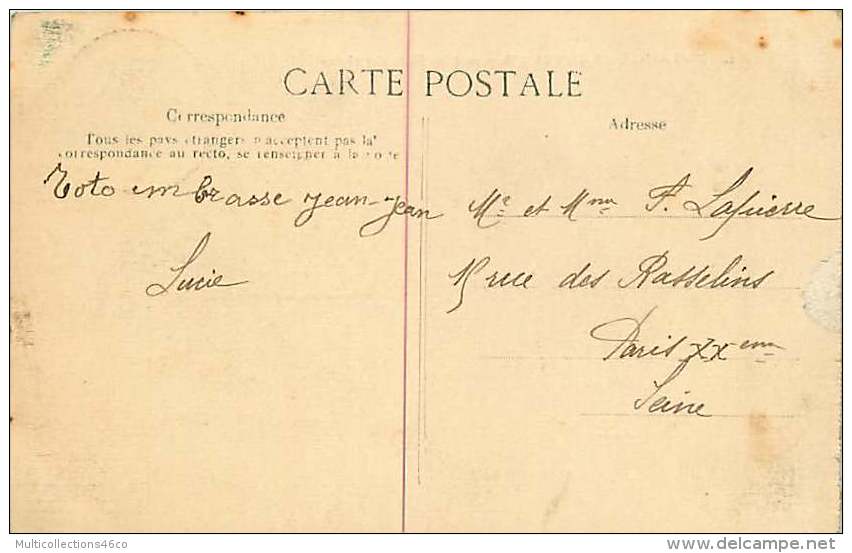 CARTE POSTALE
Correspondance
Tous les pays étrangers n'acceptent pas la
correspondance au recto, se renseigner à la poste
Adresse
Toto embrasse Jean-Jean
Lucie
Mr et Mme F. Lapierre
15 rue des Rasselins
Paris XXeme
Seine
Multicollections46co
www.delcampe.net